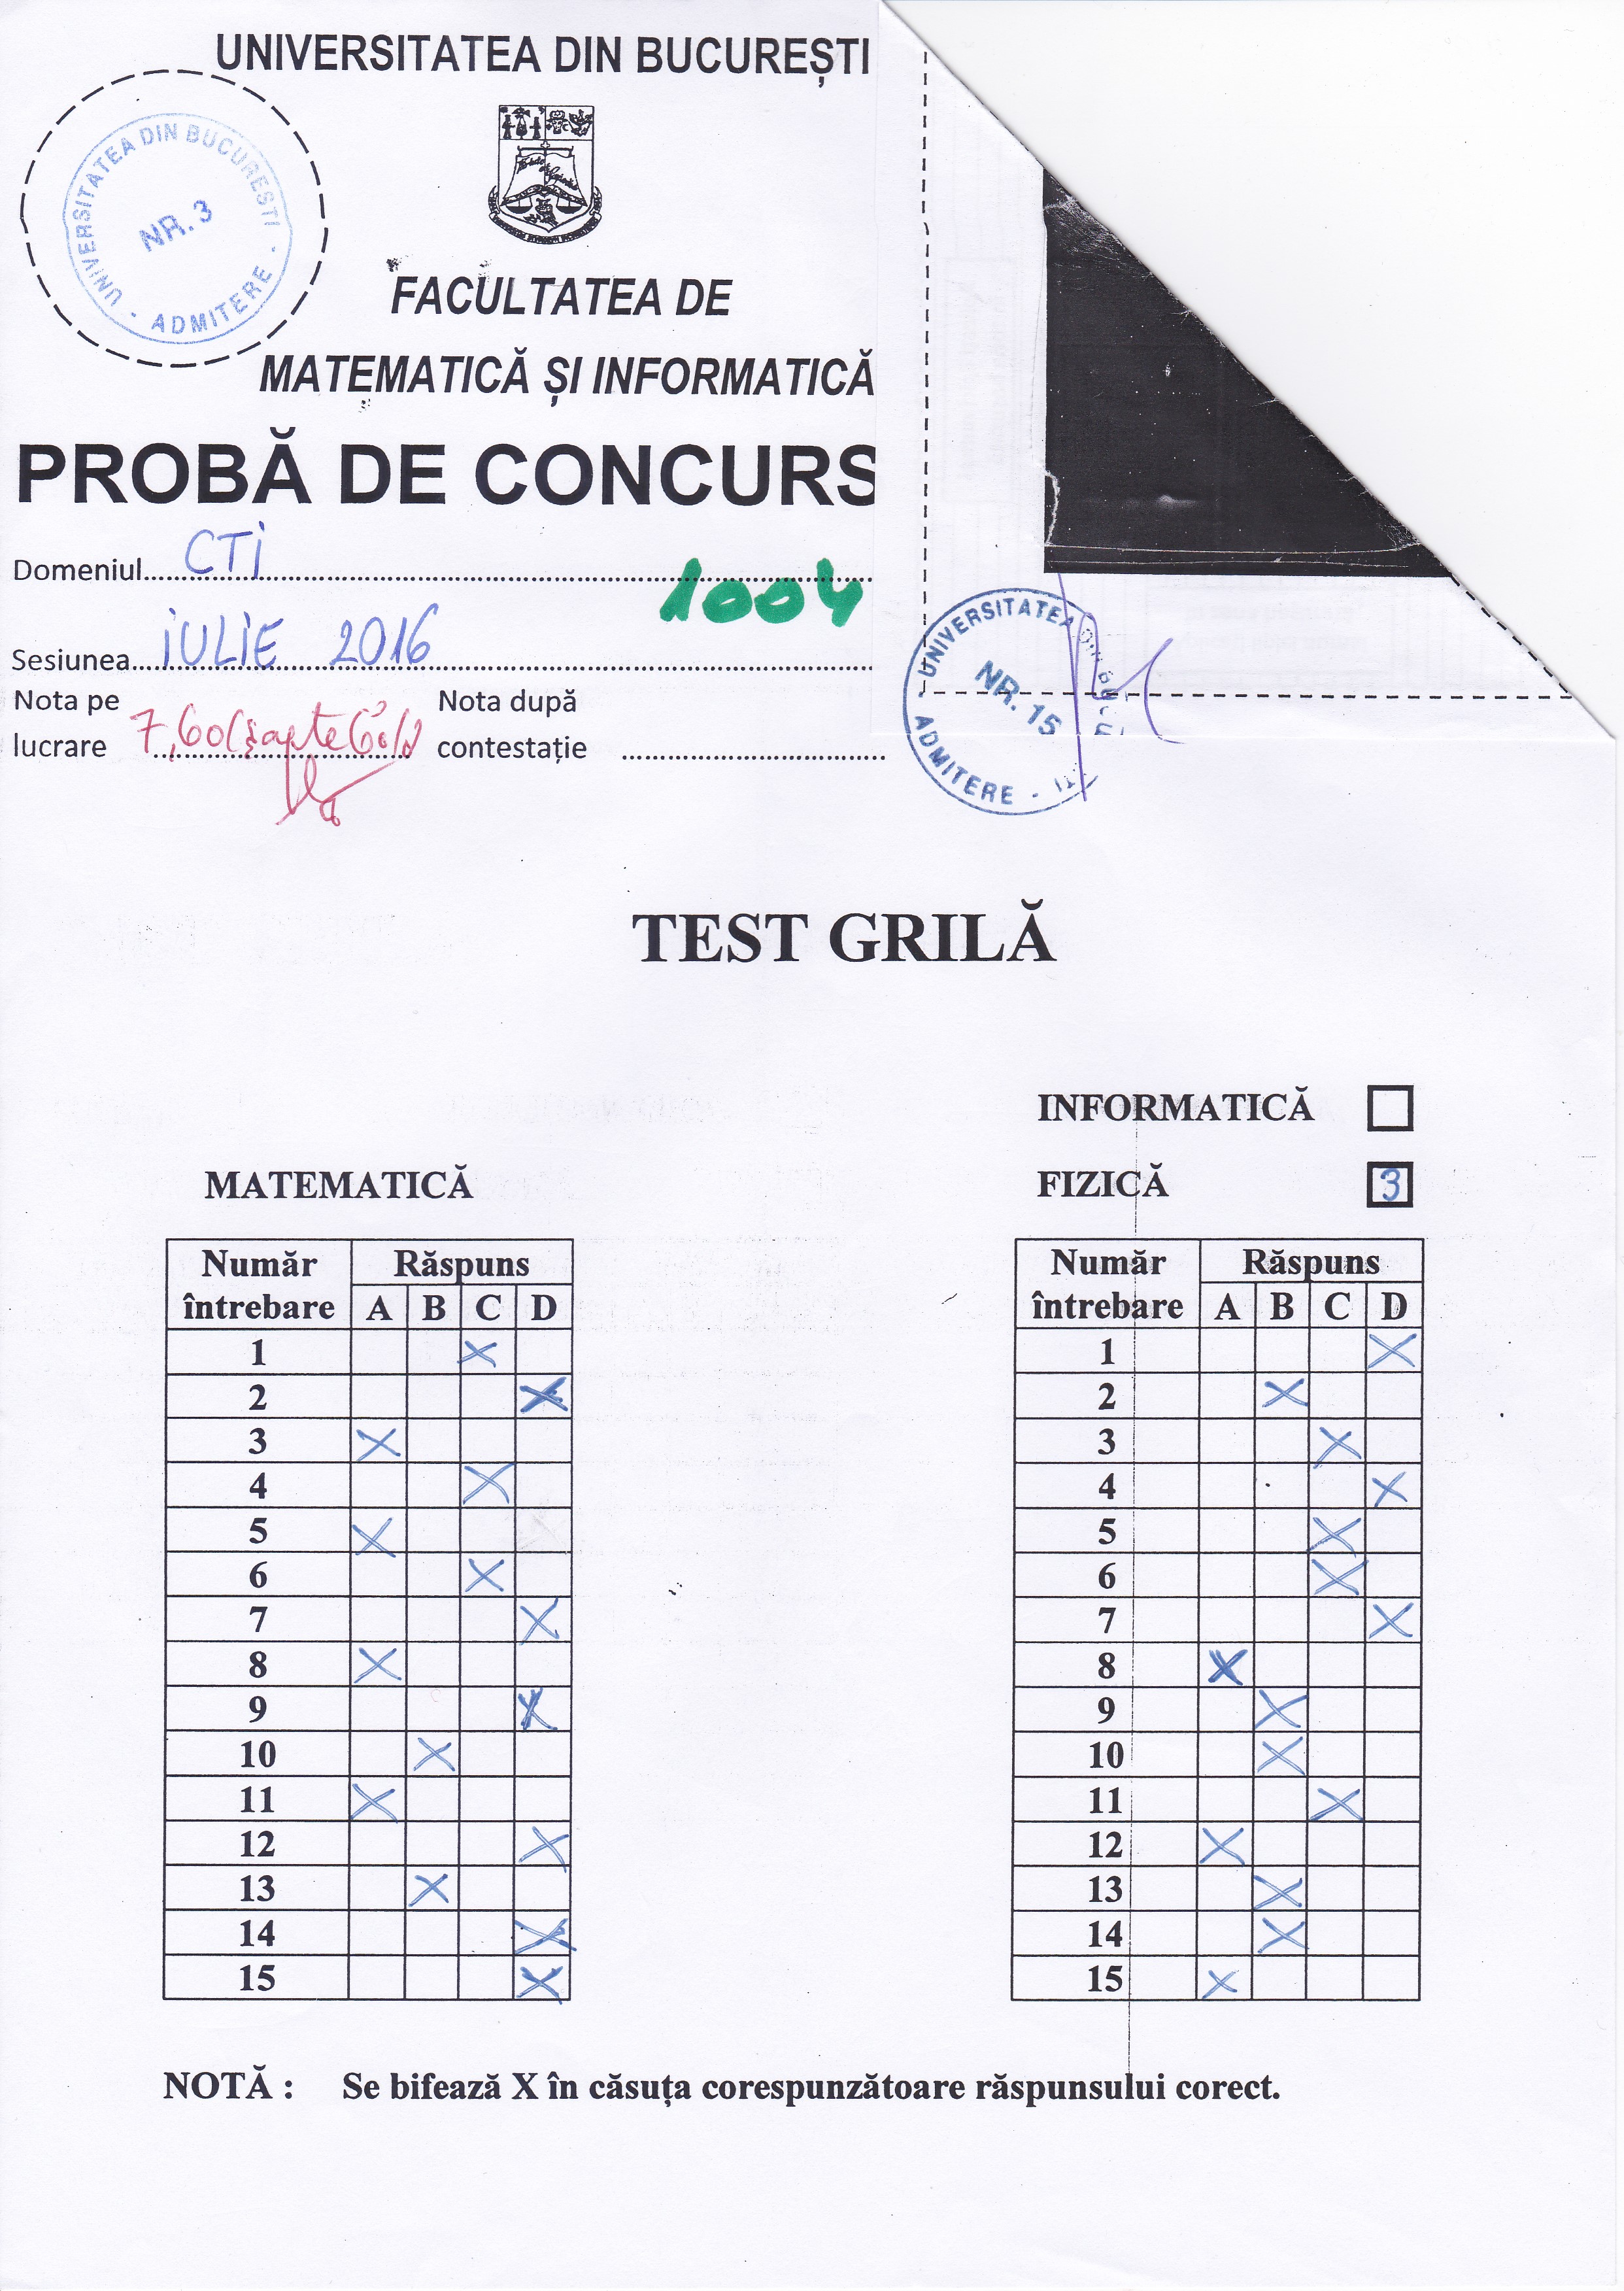 UNIVERSITATEA DIN BUCUREȘTI
UNIVERSITATEA DIN BUCURESTI - ADMITERE -
NR. 3
FACULTATEA DE
MATEMATICĂ ȘI INFORMATICĂ
PROBĂ DE CONCURS
Domeniul CTi
1004
Sesiunea iULiE 2016
Nota pe lucrare 7,60 (șapte 60%)
Nota după contestație
UNIVERSITATEA
ADMITERE -
NR. 15
TEST GRILĂ
INFORMATICĂ
MATEMATICĂ
FIZICĂ 3
Număr întrebare Răspuns
A B C D
1 X
2 X
3 X
4 X
5 X
6 X
7 X
8 X
9 X
10 X
11 X
12 X
13 X
14 X
15 X
Număr întrebare Răspuns
A B C D
1 X
2 X
3 X
4 X
5 X
6 X
7 X
8 X
9 X
10 X
11 X
12 X
13 X
14 X
15 X
NOTĂ : Se bifează X în căsuța corespunzătoare răspunsului corect.